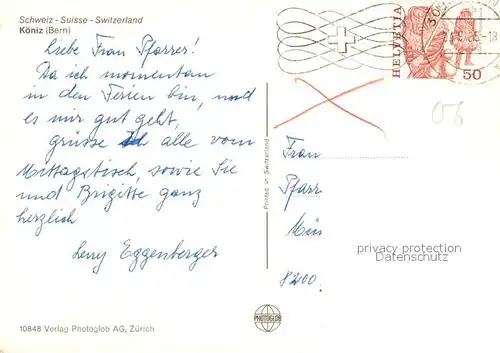 Schweiz - Suisse - Switzerland
Köniz (Bern)
Liebe Frau Pfarrer!
Da ich momentan
in den Ferien bin, und
es mir gut geht,
grüsse ich alle vom
Mittagstisch, sowie Sie
und Brigitte ganz
herzlich
Leny Eggenberger
10848 Verlag Photoglob AG, Zürich
Printed in Switzerland
PHOTOGLOB
HELVETIA
50
Frau
Pfarr
8200
privacy protection
Datenschutz